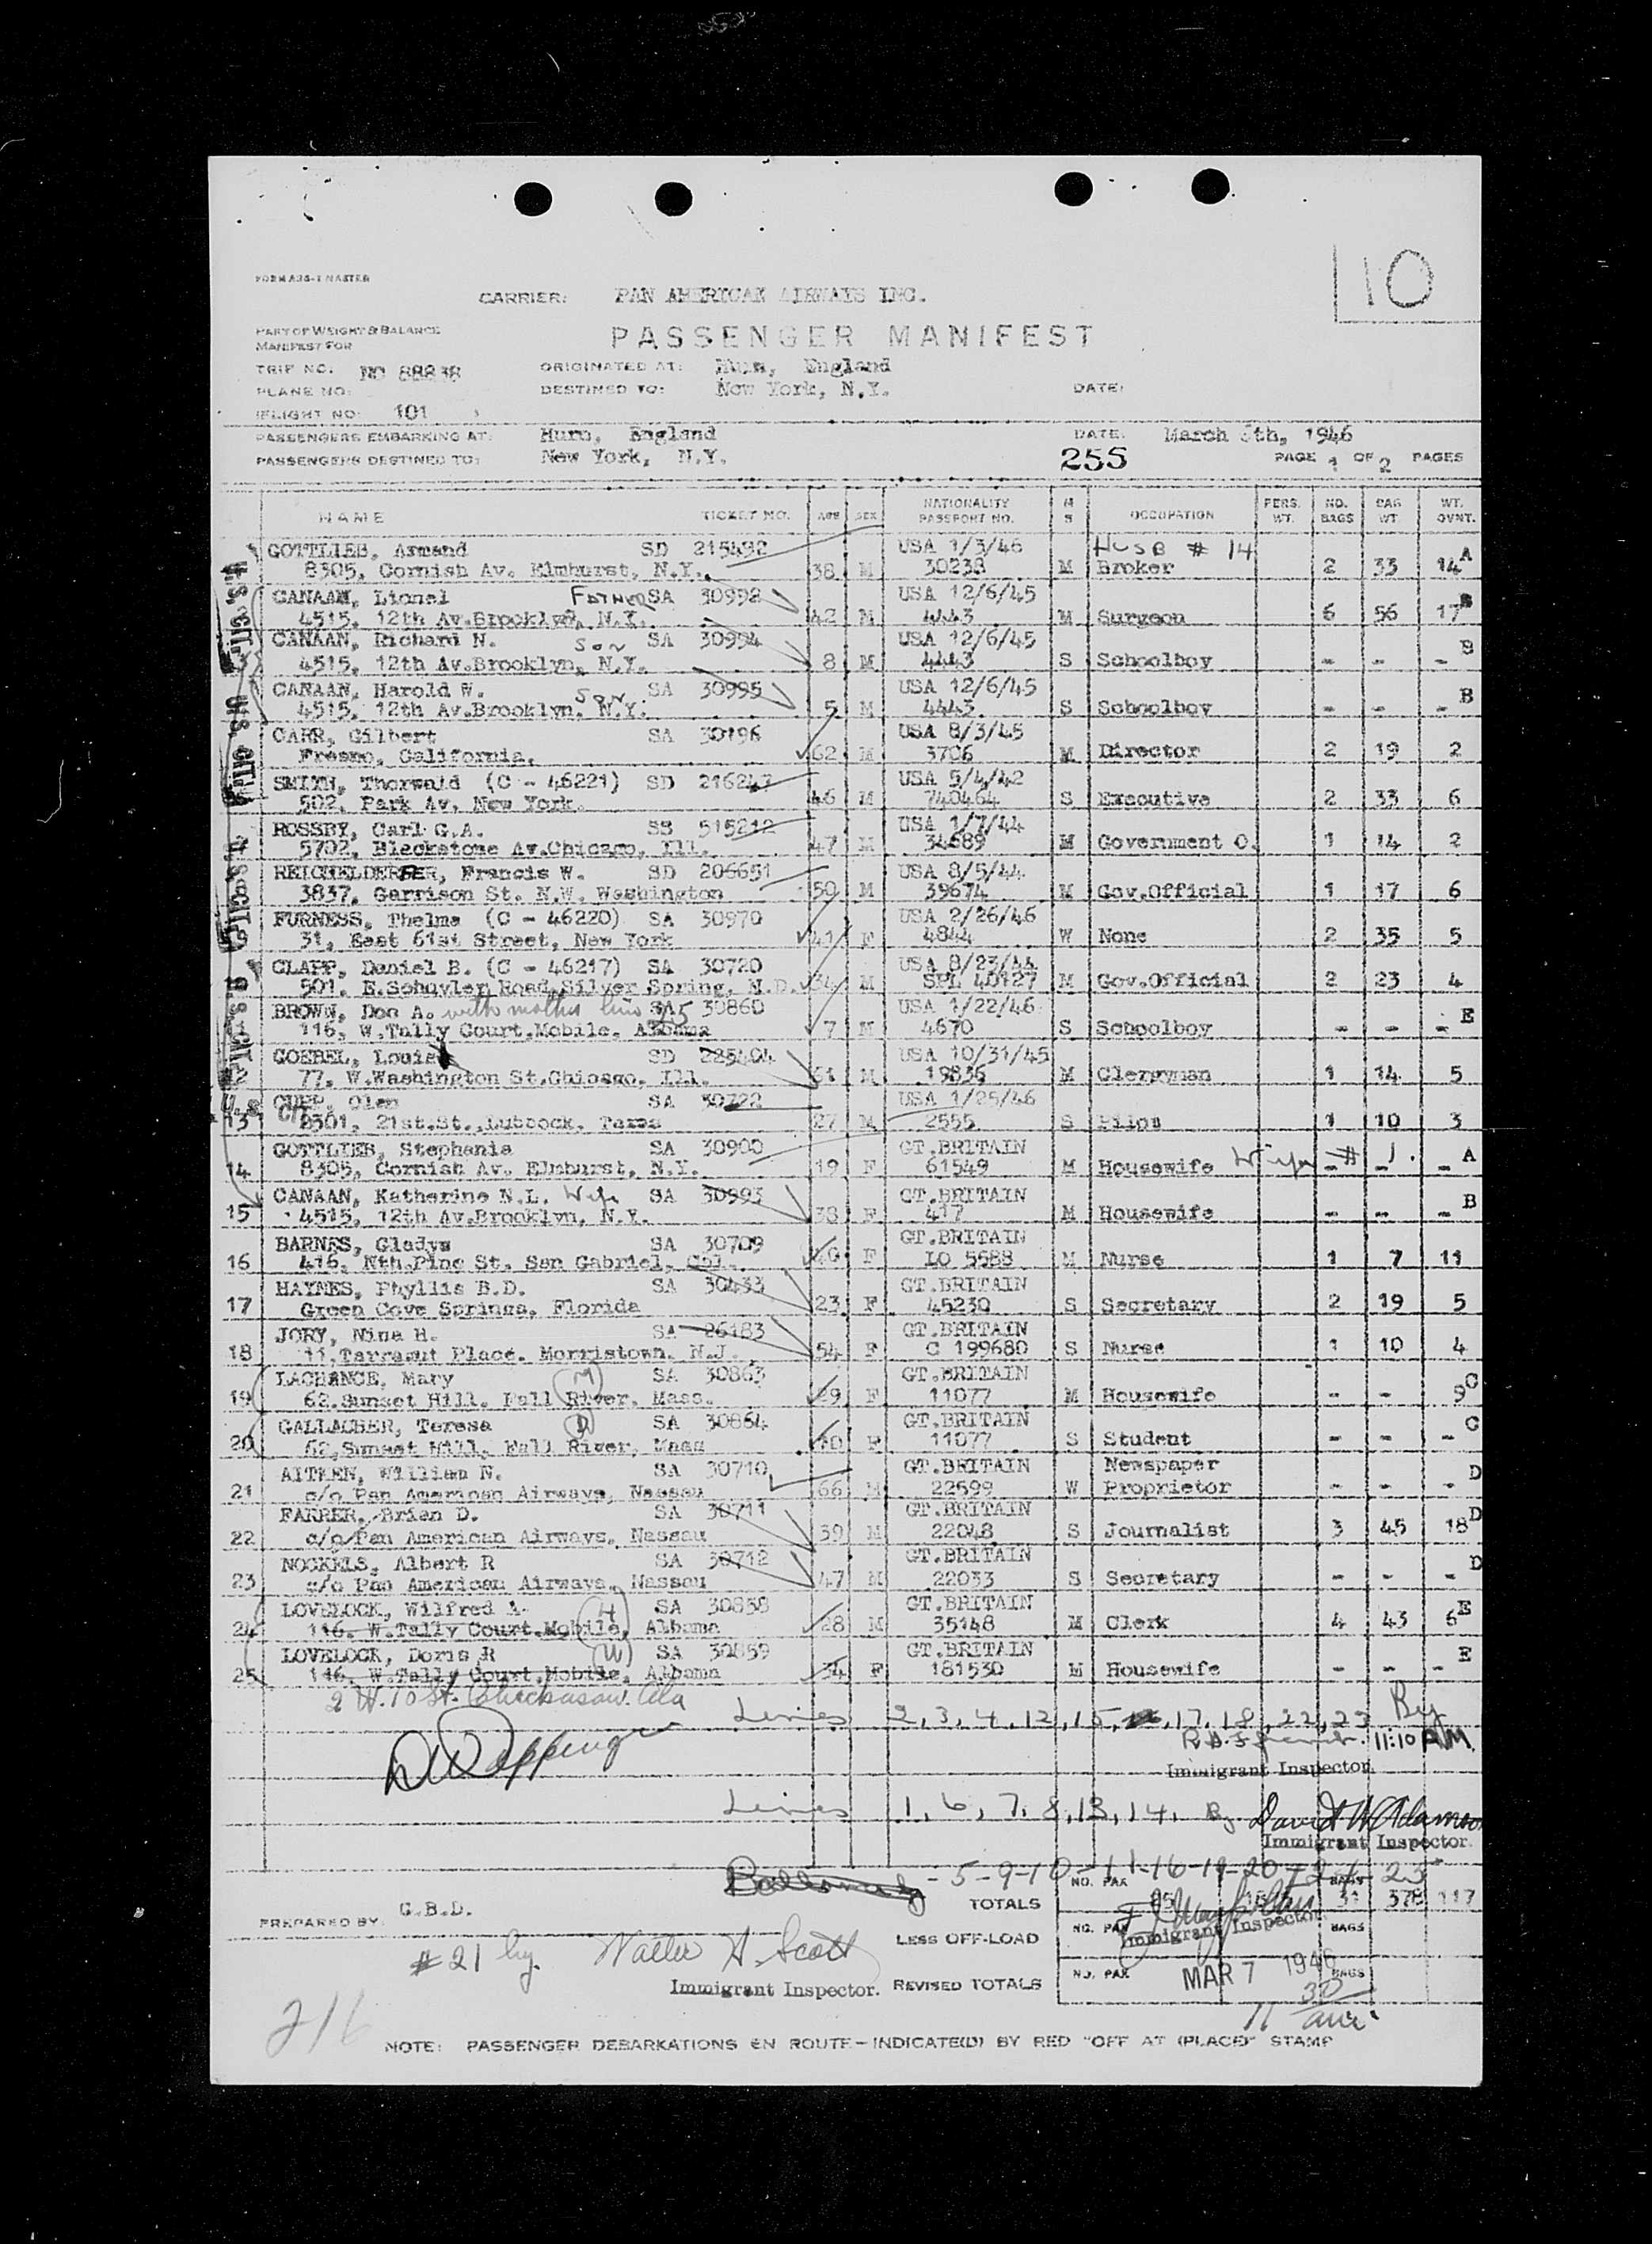 10
FORM A36-1 MASTER
CARRIER: PAN AMERICAN AIRWAYS INC.
PART OF WEIGHT & BALANCE
MANIFEST FOR
PASSENGER MANIFEST
TRIP NO. NC 88838 ORIGINATED AT: Hurn, England
PLANE NO. DESTINED TO: New York, N.Y. DATE:
FLIGHT NO. 101
PASSENGERS EMBARKING AT: Hurn, England DATE: March 6th, 1946
PASSENGERS DESTINED TO: New York, N.Y. 255 PAGE 1 OF 2 PAGES
NAME TICKET NO. AGE SEX NATIONALITY PASSPORT NO. M S OCCUPATION PERS. WT. NO. BAGS BAG WT WT. OVNT.
GOTTLIEB, Armand SD 215492 USA 1/3/46 Husb # 14
8305, Cornish Av. Elmhurst, N.Y. 38 M 30238 M Broker 2 33 14 A
CANAAN, Lionel Father SA 30992 USA 12/6/45
4515, 12th Av.Brooklyn, N.Y. 42 M 4443 M Surgeon 6 56 17 B
CANAAN, Richard N. Son SA 30994 USA 12/6/45
4515, 12th Av.Brooklyn, N.Y. 8 M 4443 S Schoolboy - - - B
CANAAN, Harold W. Son SA 30995 USA 12/6/45
4515, 12th Av.Brooklyn, N.Y. 5 M 4443 S Schoolboy - - - B
CARR, Gilbert SA 30196 USA 8/3/45
Fresno, California, 62 M 3706 M Director 2 19 2
SMITH, Thorwald (C - 46221) SD 216247 USA 5/4/42
502, Park Av, New York. 46 M 740464 S Executive 2 33 6
ROSSBY, Carl G.A. SB 515212 USA 1/7/44
5702, Blackstone Av.Chicago, Ill. 47 M 34689 M Government O. 1 14 2
REICHELDERFER, Francis W. SD 206651 USA 8/5/44
3837, Garrison St. N.W. Washington 50 M 39674 M Gov.Official 1 17 6
FURNESS, Thelma (C - 46220) SA 30970 USA 2/26/46
31, East 61st Street, New York 41 F 4844 W None 2 35 5
CLAPP, Daniel B. (C - 46217) SA 30720 USA 8/23/44
501, E.Schuyler Road,Silver Spring, M.D. 34 M SPL 40127 M Gov.Official 2 23 4
BROWN, Don A. with mother line 25 SA 30860 USA 1/22/46
116, W.Tally Court,Mobile, Alabama 7 M 4670 S Schoolboy - - - E
GOEBEL, Louis SD 225404 USA 10/31/45
77, W.Washington St.Chicago, Ill. 61 M 19836 M Clergyman 1 14 5
CUPP, Olen SA 30722 USA 1/25/46
13 2301, 21st.St.,Lubbock, Texas 27 M 2555 S Pilot 1 10 3
GOTTLIEB, Stephania SA 30900 GT.BRITAIN
14 8305, Cornish Av. Elmhurst, N.Y. 19 F 61549 M Housewife Wife # 1. - - - A
CANAAN, Katherine N.L. Wife SA 30993 GT.BRITAIN
15 4515, 12th Av.Brooklyn, N.Y. 38 F 417 M Housewife - - - B
BARNES, Gladys SA 30709 GT.BRITAIN
16 416, Nth.Pine St. San Gabriel, Cal. 40 F LO 5688 M Nurse 1 7 11
HAYNES, Phyllis B.D. SA 30433 GT.BRITAIN
17 Green Cove Springs, Florida 23 F 45230 S Secretary 2 19 5
JORY, Nina H. SA 26183 GT.BRITAIN
18 11, Place. Morristown, N.J. 54 F C 199680 S Nurse 1 10 4
LACHANCE, Mary (M) SA 30863 GT.BRITAIN
19 62,Sunset Hill, Fall River, Mass. 29 F 11077 M Housewife - - 9 C
GALLAGHER, Teresa (D) SA 30864 GT.BRITAIN
20 62,Sunset Hill, Fall River, Mass 10 F 11077 S Student - - - C
AITKEN, William N. SA 30710 GT.BRITAIN Newspaper
21 c/o Pan American Airways, Nassau 66 M 22599 W Proprietor - - - D
FARRER, Brian D. SA 30711 GT.BRITAIN
22 c/o Pan American Airways, Nassau 39 M 22048 S Journalist 3 45 18 D
NOCKELS, Albert R SA 30712 GT.BRITAIN
23 c/o Pan American Airways, Nassau 47 M 22033 S Secretary - - - D
LOVELOCK, Wilfred A. (H) SA 30858 GT.BRITAIN
24 116, W.Tally Court,Mobile, Albama 28 M 35148 M Clerk 4 43 6 E
LOVELOCK, Doris R (W) SA 30859 GT.BRITAIN
25 116, W.Tally Court,Mobile, Albama 34 F 181530 M Housewife - - - E
2 W. 10 St. Chickasaw. Ala
Lines 2,3,4,12,15,17,18,22,23 By
11:10 AM
Immigrant Inspector.
Lines 1,6,7,8,13,14. By David W Adamson
Immigrant Inspector.
-5-9-10-11-16-19-20-24-25
TOTALS NO. PAX 25 BAGS 31 378 117
PREPARED BY: G.B.D.
LESS OFF-LOAD NO. PAX BAGS
Immigrant Inspector.
#21 by Walter H. Scott
Immigrant Inspector. REVISED TOTALS NO. PAX BAGS
MAR 7 1946
11 30 am.
216
NOTE: PASSENGER DEBARKATIONS EN ROUTE-INDICATE(D) BY RED "OFF AT (PLACE)" STAMP